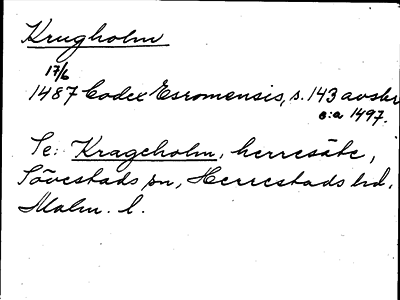 Krugholm
17/6
1487 Codex Esromensis, s. 143 avskr
c:a 1497.
Se: Krageholm, herresäte,
Sövestads sn, Herrestads hd,
Malm. l.